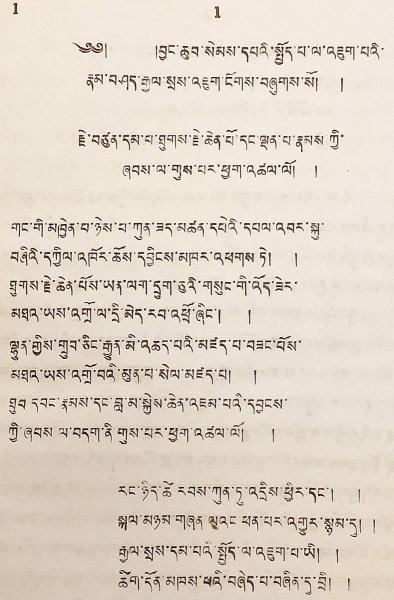 1
1
༄༅། །བྱང་ཆུབ་སེམས་དཔའི་སྤྱོད་པ་ལ་འཇུག་པའི་
རྣམ་བཤད་རྒྱལ་སྲས་འཇུག་ངོགས་བཞུགས་སོ། །
རྗེ་བཙུན་དམ་པ་ཐུགས་རྗེ་ཆེན་པོ་དང་ལྡན་པ་རྣམས་ཀྱི་
ཞབས་ལ་གུས་པར་ཕྱག་འཚལ་ལོ། །
གང་གི་མཁྱེན་བ་ཉེས་པ་ཀུན་ཟད་མཚན་དཔེའི་དཔལ་འབར་སྐུ་
བཞིའི་དཀྱིལ་འཁོར་ཆོས་དབྱིངས་མཁར་འཕགས་ཏེ། །
ཐུགས་རྗེ་ཆེན་པོས་ཡན་ལག་དྲུག་ཅུའི་གསུང་གི་འོད་ཟེར་
མཐའ་ཡས་འགྲོ་ལ་དྲི་མེད་རབ་འཕྲོ་ཞིང་། །
ལྷུན་གྱིས་གྲུབ་ཅིང་རྒྱུན་མི་འཆད་པའི་མཛད་པ་བཟང་པོས་
མཐའ་ཡས་འགྲོ་བའི་མུན་པ་སེལ་མཛད་པ། །
ཐུབ་དབང་རྣམས་དང་བླ་མ་སྐྱེས་ཆེན་འཇམ་པའི་དབྱངས་
ཀྱི་ཞབས་ལ་བདག་ནི་གུས་པར་ཕྱག་འཚལ་ལོ། །
རང་ཉིད་ཚེ་རབས་ཀུན་ཏུ་འདྲིས་ཕྱིར་དང་། །
སྐལ་མཉམ་གཞན་ལའང་ཕན་པར་འགྱུར་སྙམ་དུ། །
རྒྱལ་སྲས་དམ་པའི་སྤྱོད་ལ་འཇུག་པ་ཡི། །
ཚིག་དོན་མཁས་པའི་བཞེད་པ་བཞིན་དུ་བྲི། །